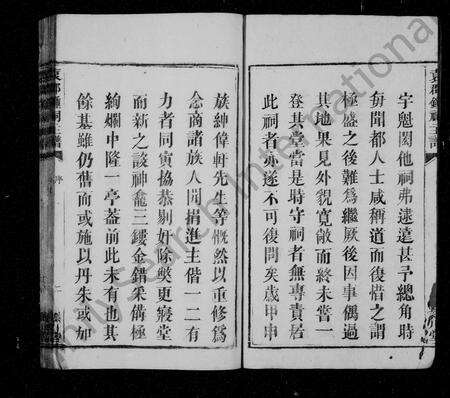 宇魁閎他祠弗逮遠甚予總角時
每聞都人士咸稱道而復惜之謂
極盛之後難為繼厥後因事偶過
其地果見外貌寬敞而終未嘗一
登其堂當是時守祠者無專責居
此祠者亦遂不可復問矣歲甲申
族紳偉軒先生等慨然以重修為
念商諸族人間捐進主偕一二有
力者同寅協恭剔奸除獘更寢堂
而新之設神龕三鏤金錯采備極
絢爛中隆一亭蓋前此未有也其
餘基雖仍舊而或施以丹朱或加
袁郡鍾祠主譜
序
FamilySearch International